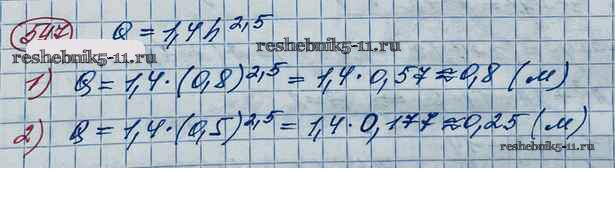 547 Q = 1,4h^2,5
reshebnik5-11.ru
reshebnik5-11.ru
1) Q = 1,4·(0,8)^2,5 = 1,4·0,57≈0,8 (м)
2) Q = 1,4·(0,5)^2,5 = 1,4·0,177≈0,25 (м)
reshebnik5-11.ru
reshebnik5-11.ru